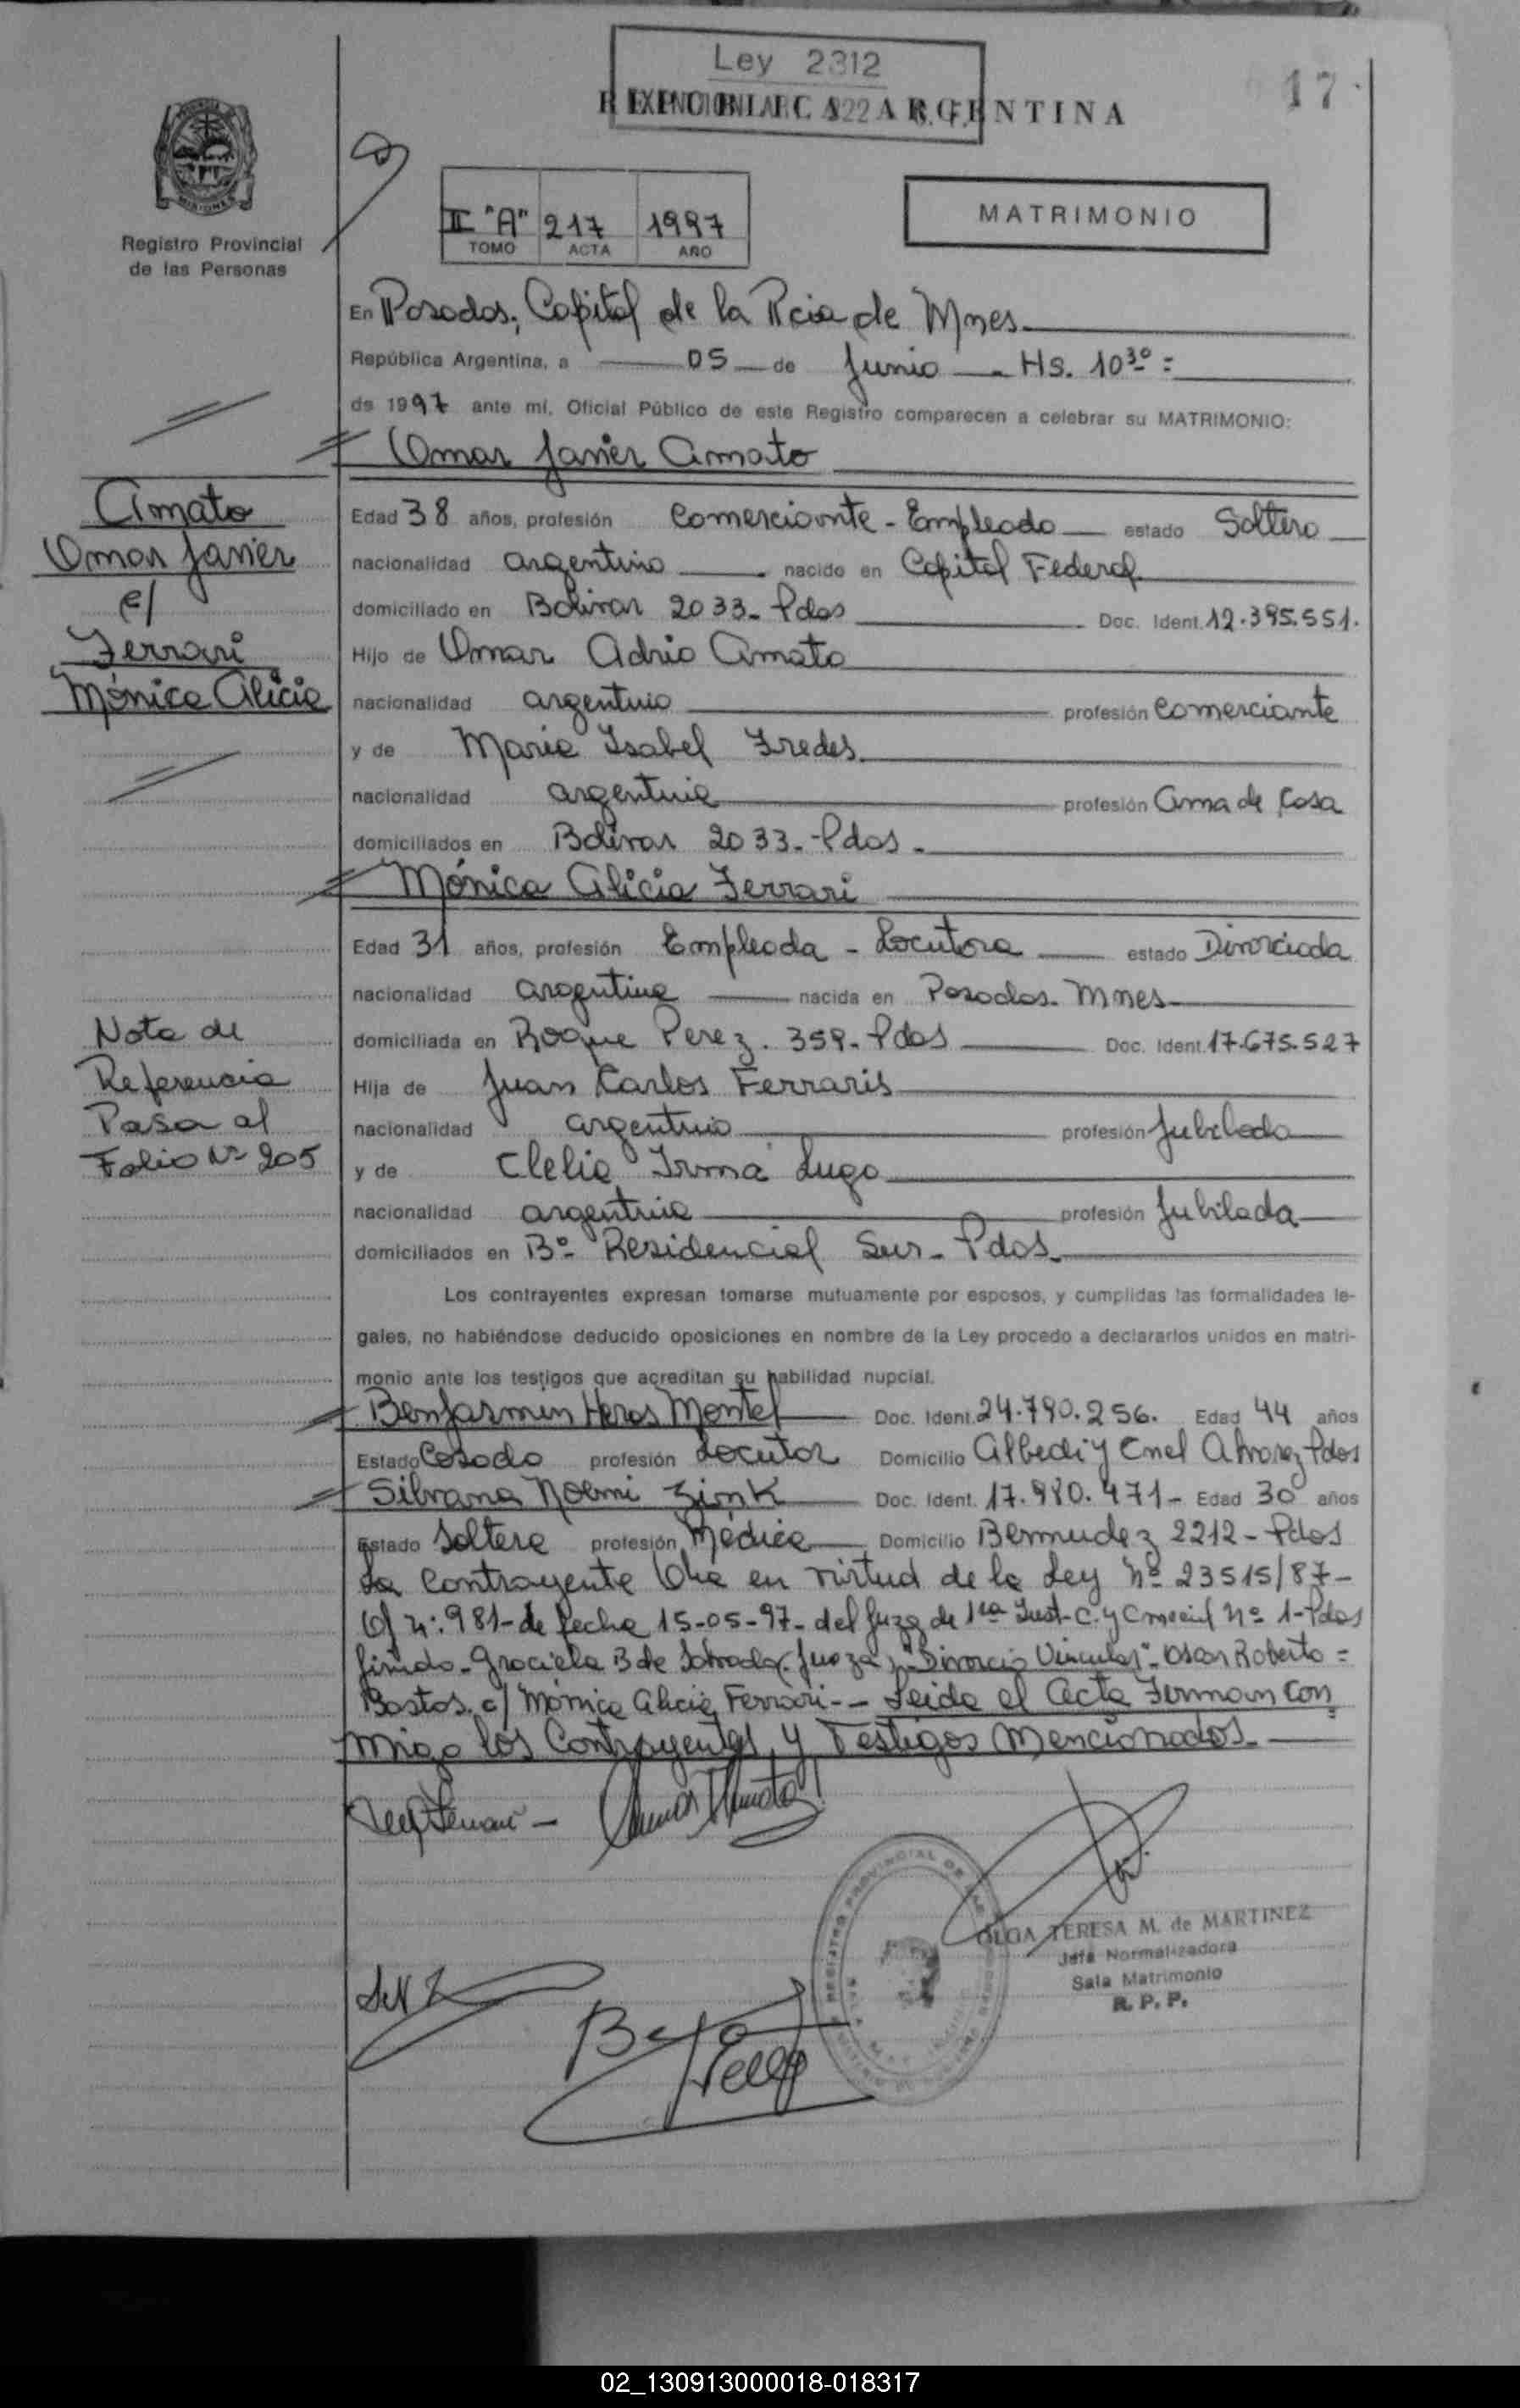 Ley 2312
17
REPUBLICA ARGENTINA
MISIONES
Registro Provincial
de las Personas
II "A" 217 1997
TOMO ACTA AÑO
MATRIMONIO
En Posadas, Capital de la Pcia de Mnes
República Argentina, a 05 de Junio Hs. 10³⁰=
de 1997 ante mí, Oficial Público de este Registro comparecen a celebrar su MATRIMONIO:
Omar Javier Amato
Amato
Omar Javier
c/
Ferrari
Mónica Alicia
Edad 38 años, profesión Comerciante - Empleado estado Soltero
nacionalidad argentino nacido en Capital Federal
domiciliado en Bolivar 2033- Pdas Doc. Ident. 12.395.551.
Hijo de Omar Adrio Amato
nacionalidad argentino profesión Comerciante
y de Maria Isabel Fredes
nacionalidad argentina profesión Ama de Casa
domiciliados en Bolivar 2033.- Pdas.
Mónica Alicia Ferrari
Edad 31 años, profesión Empleada - Locutora estado Divorciada
nacionalidad argentina nacida en Posadas. Mnes
domiciliada en Roque Perez. 359- Pdas Doc. Ident. 17.675.527
Hija de Juan Carlos Ferraris
nacionalidad argentino profesión Jubilado
y de Clelia Irma Lugo
nacionalidad argentina profesión Jubilada
domiciliados en B° Residencial Sur- Pdas.
Nota de
Referencia
Pasa al
Folio Nº 205
Los contrayentes expresan tomarse mutuamente por esposos, y cumplidas las formalidades le-
gales, no habiéndose deducido oposiciones en nombre de la Ley procedo a declararlos unidos en matri-
monio ante los testigos que acreditan su habilidad nupcial.
Benjasmin Heros Montel Doc. Ident. 24.790.256. Edad 44 años
Estado Casado profesión Locutor Domicilio y Cnel Alvarez Pdas
Silvana Noemi Zink Doc. Ident. 17.980.471- Edad 30 años
Estado Soltera profesión Médica Domicilio Bermudez 2212- Pdas
La Contrayente en virtud de la Ley Nº 23515/87-
Of n: 981- de fecha 15-05-97- del Juzg de 1ra Inst- C. y Cmecial nº 1- Pdas
firmado- Graciela B de (Jueza), "Divorcio Vincular"- Oscar Roberto=
Bastos c/ Mónica Alicia Ferrari-- Leida el Acta Firman Con
migo los Contrayentes y Testigos Mencionados
OLGA TERESA M. de MARTINEZ
Jefa Normalizadora
Sala Matrimonio
R. P. P.
02_130913000018-018317